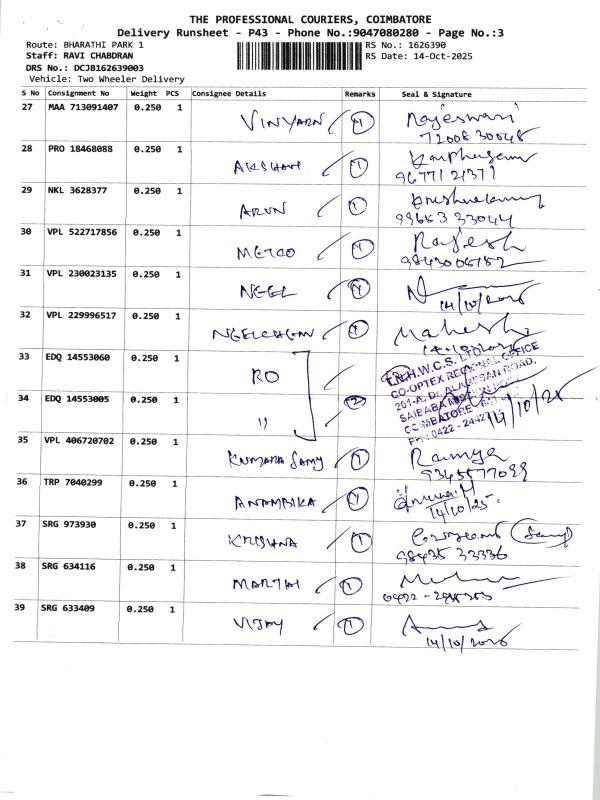 THE PROFESSIONAL COURIERS, COIMBATORE
Delivery Runsheet - P43 - Phone No.:9047080280 - Page No.:3
Route: BHARATHI PARK 1 RS No.: 1626390
Staff: RAVI CHABDRAN RS Date: 14-Oct-2025
DRS No.: DCJB162639003
Vehicle: Two Wheeler Delivery
S No Consignment No Weight PCS Consignee Details Remarks Seal & Signature
27 MAA 713091407 0.250 1 VINYARN 1 Rajeswari
72008 30048
28 PRO 18468088 0.250 1 1
96771 21371
29 NKL 3628377 0.250 1 ARUN 1
99653 33044
30 VPL 522717856 0.250 1 METCO 1 Rajesh
9843006152
31 VPL 230023135 0.250 1 NEEL 1
14/10/2025
32 VPL 229996517 0.250 1 1 Mahesh
33 EDQ 14553060 0.250 1 RO
T.N.H.W.C.S. LTD
CO-OPTEX REGIONAL OFFICE
201-A, Dr. ALAGESAN ROAD,
34 EDQ 14553005 0.250 1 " 2
SAIBABA MISSION POST
COIMBATORE
PH : 0422 - 14/10/25
35 VPL 406720702 0.250 1 KUMARA SAMY 1 Ramya
9345577099
36 TRP 7040299 0.250 1 ANAMBIKA 1
14/10/25
37 SRG 973930 0.250 1 KRISHNA 1
98435 33336
38 SRG 634116 0.250 1 1
39 SRG 633409 0.250 1 VIJAY 1
14/10/2025